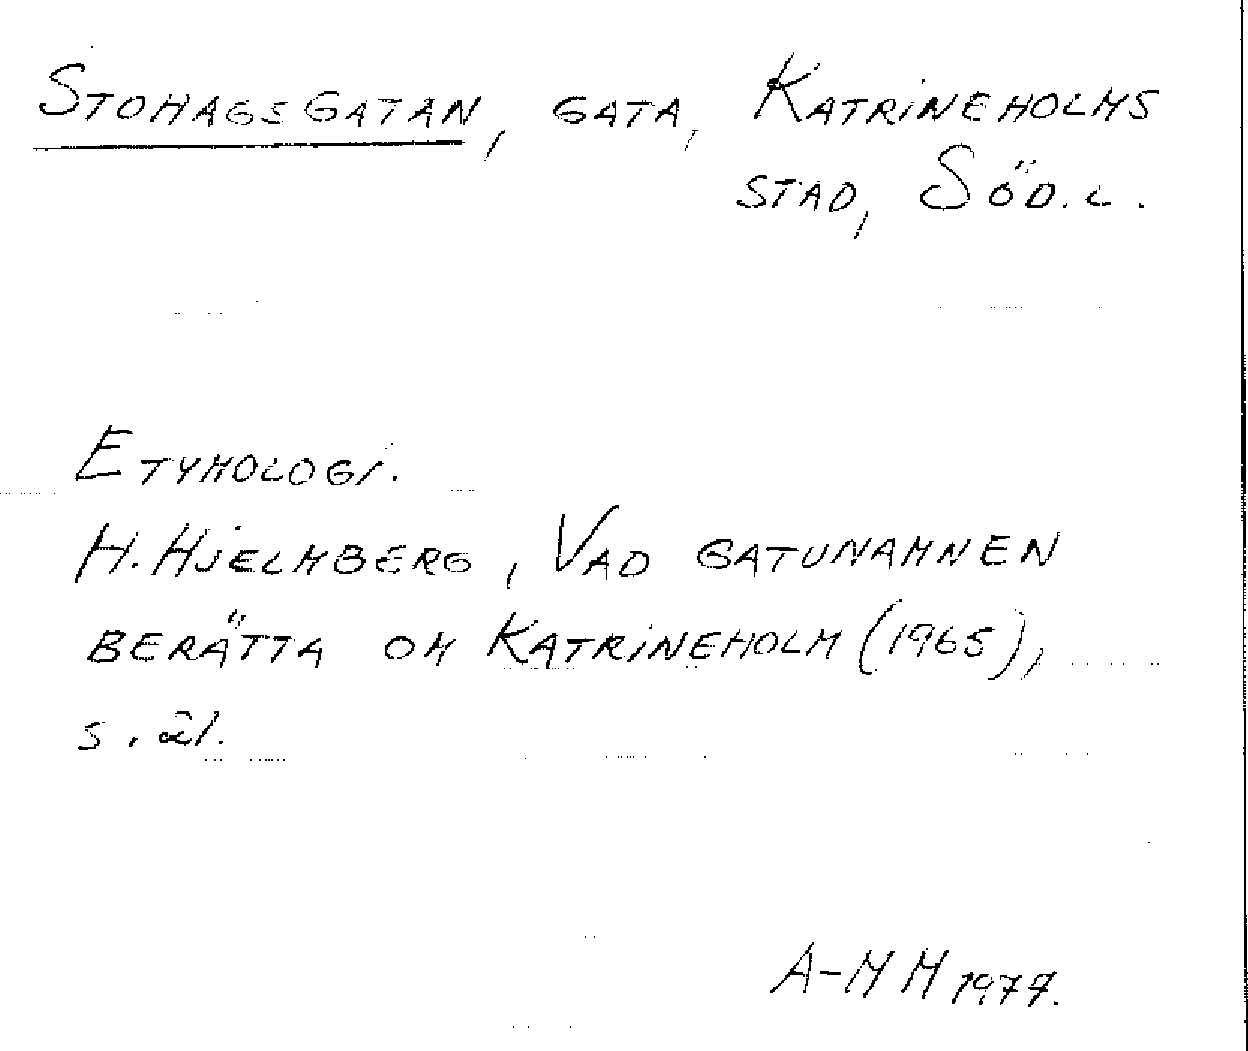 Stohagsgatan, gata, Katrineholms
stad, Söd. l.
Etymologi.
H. Hjelmberg, Vad gatunamnen
berätta om Katrineholm (1965),
s. 21.
A-MM 1977.